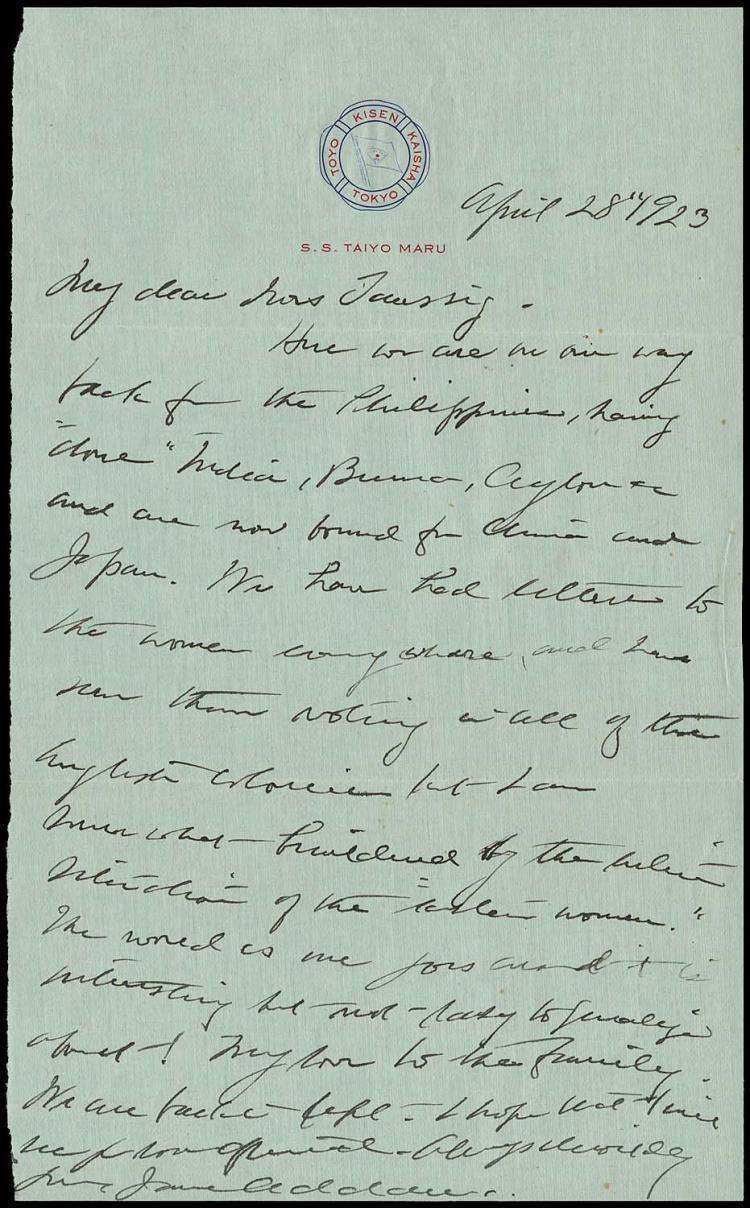 TOYO KISEN KAISHA
TOKYO
S. S. TAIYO MARU
April 28" 1923
My dear Mrs Taussig -
Here we are on our way
back fr the Philippines, having
"done" India, Burma, Ceylon &c
and are now bound for China and
Japan. We have had letters to
the women everywhere, and have
seen them voting in all of the
English colonies but I am
somewhat bewildered by the
situation of the "eastern women."
The world as one goes around it is
interesting but not easy to generalize
about! My love to the family.
We are back in Sept - I hope that
Always devotedly
yrs Jane Addams.